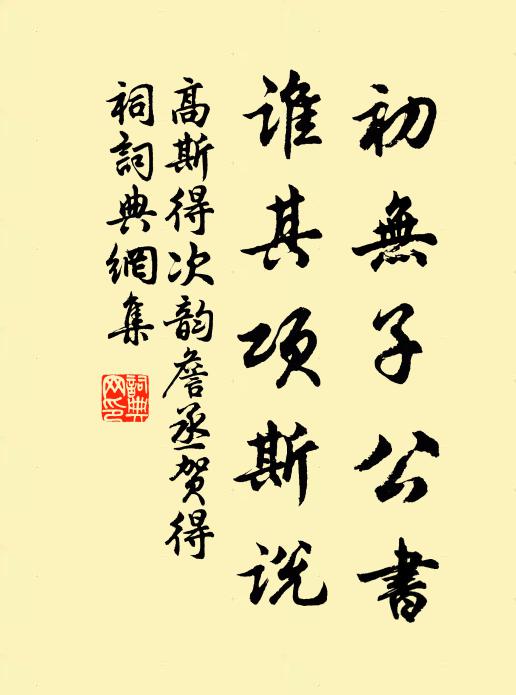 初無子公書
誰其項斯説
高斯得次韵詹丞贺得
祠詞典網集
詞典
网印